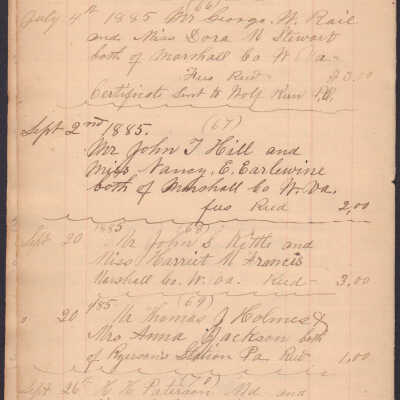 (66)
July 4th 1885 Mr George W. Rail
and Miss Dora M Stewart
both of Marshall Co W Va
Fees Recd $3.00
Certificat Sent to Wolf Run P.O.
Sept 2nd 1885. (67)
Mr John T Hill and
Miss Nancy, E. Earlewine
both of Marshall Co W. Va.
fees Recd 2,00
1885 (68)
Sept 20 Mr John S and
Miss Harriet M Francis
Marshall Co. W. Va. Recd 3,00
1885 (69)
20 Mr Thomas J Holmes &
Mrs Anna Jackson both
of Ryerson's Station Pa Recd 1,00
(70)
Sept 26th H H Paterson Md and